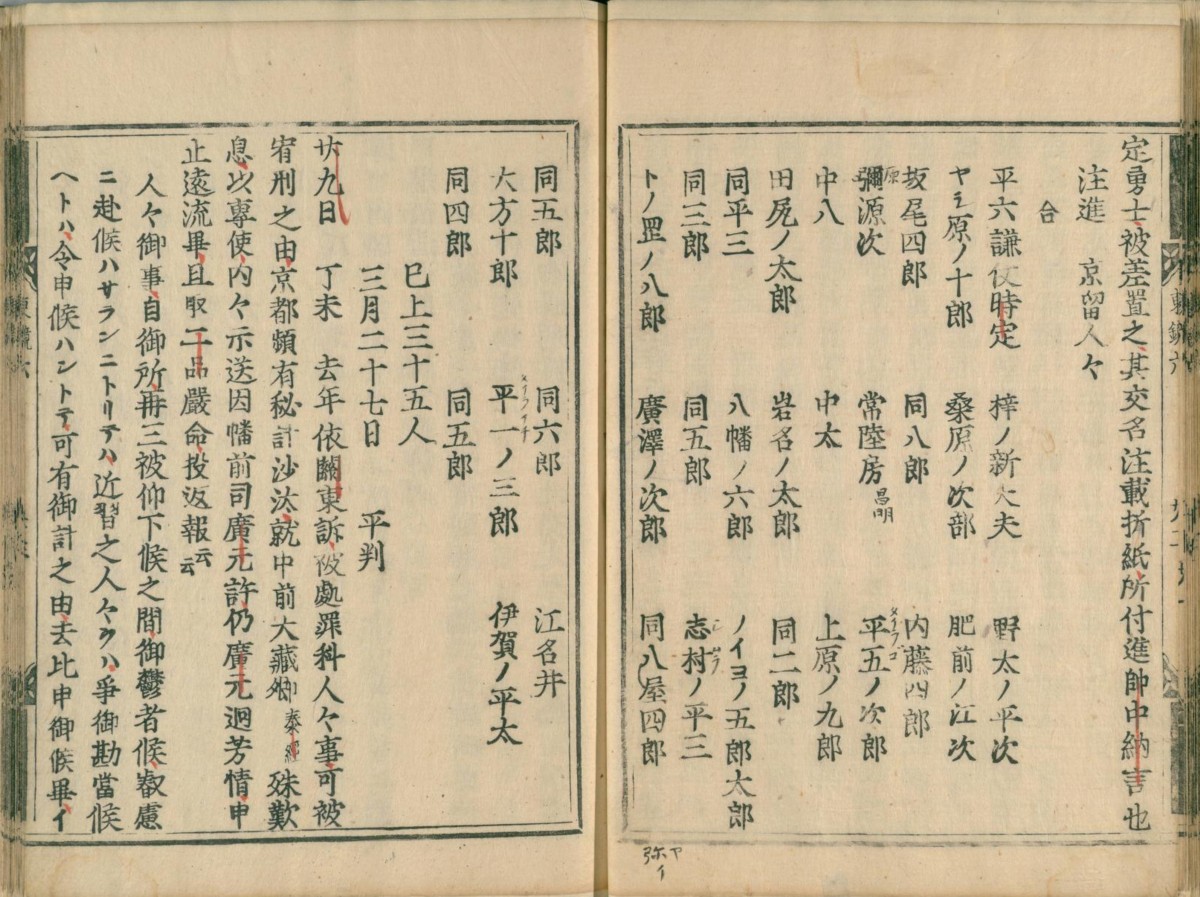 定勇士被差置之其交名注載折紙所付進帥中納言也
注進 京留人々
合
平六謙仗時定 梓ノ新大夫 野太ノ平次
ヤミ原ノ十郎 桑原ノ次部 肥前ノ江次
坂尾四郎 同八郎 内藤四郎
彌源次 常陸房昌明 平五ノ次郎
中八 中太 上原ノ九郎
田尻ノ太郎 岩名ノ太郎 同二郎
同平三 八幡ノ六郎 ノイヨノ五郎太郎
同三郎 同五郎 志村ノ平三
トノ罡ノ八郎 廣澤ノ次郎 同八屋四郎
同五郎 同六郎 江名井
大方十郎 平一ノ三郎 伊賀ノ平太
同四郎 同五郎
已上三十五人
三月二十七日 平判
廿九日 丁未 去年依關東訴被處罪科人々事可被
宥刑之由京都頻有秘計沙汰就中前大藏卿泰經殊歎
息以專使内々示送因幡前司廣元許仍廣元廻芳情申
止遠流畢且取二品嚴命投返報云云
人々御事自御所再三被仰下候之間御鬱者候叡慮
ニ赴候ハサランニトリテハ近習之人々ヲハ爭御勘當候
ヘトハ令申候ハントテ可有御計之由去比申御候畢イ